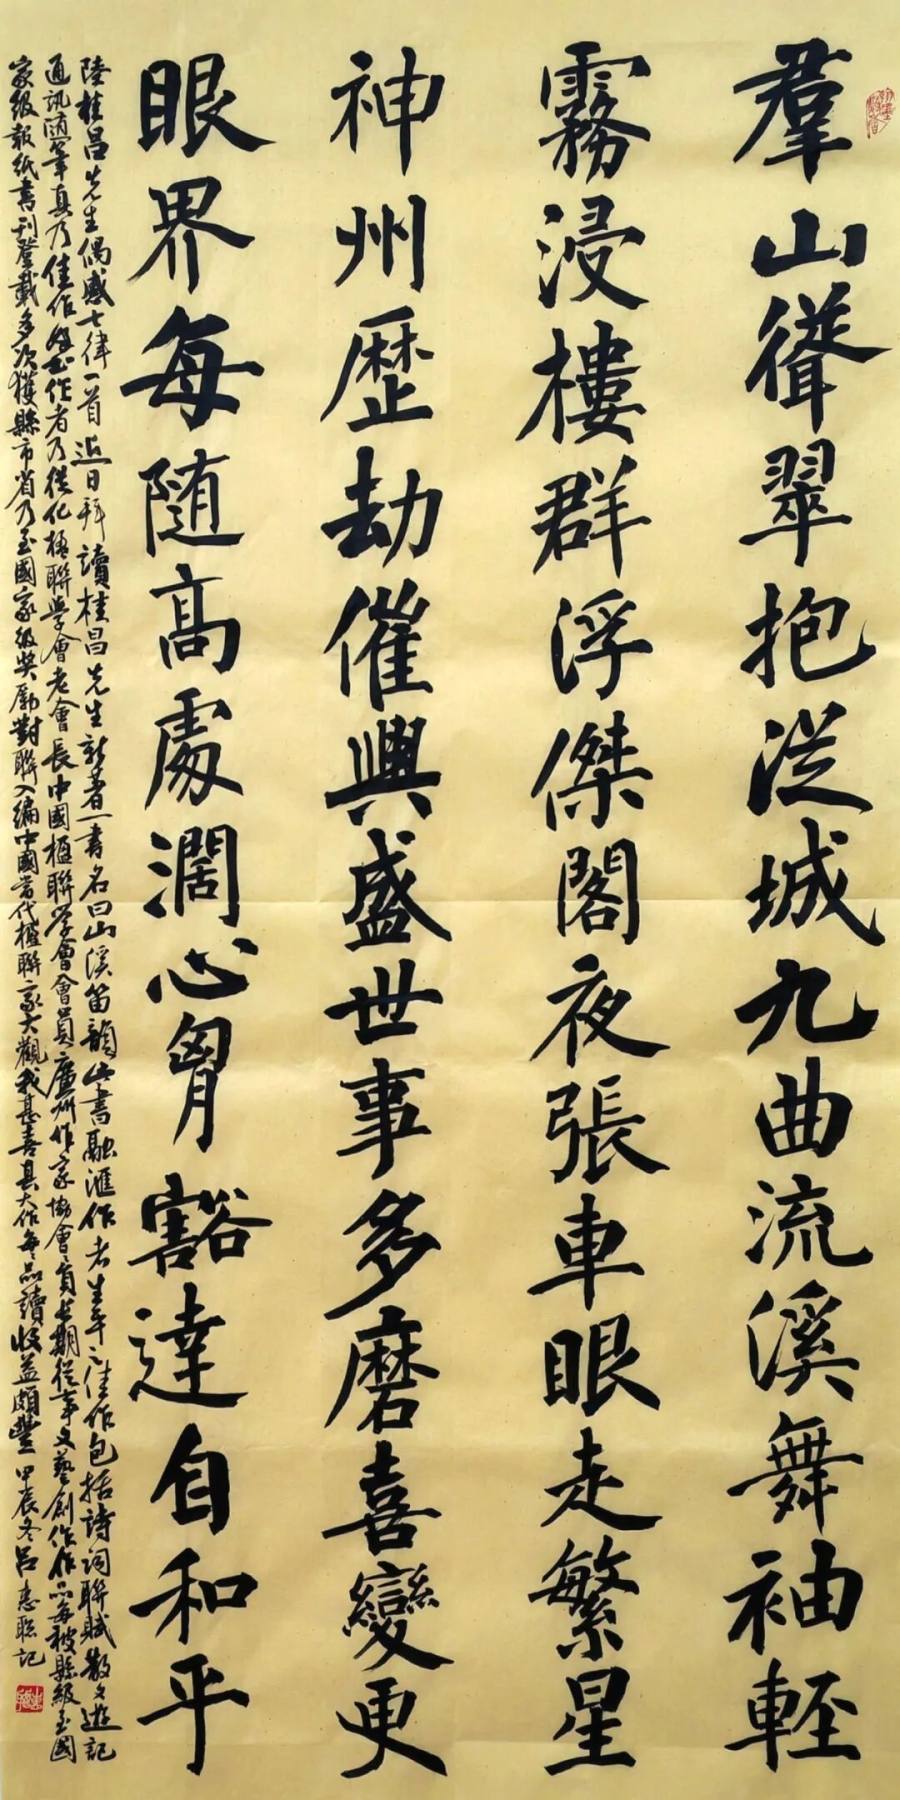 羣山聳翠抱從城九曲流溪舞袖輕
霧浸樓群浮傑閣夜張車眼走繁星
神州歷劫催興盛世事多磨喜變更
眼界每隨高處濶心胷豁達自和平
陸桂昌先生偶感七律一首近日拜讀桂昌先生新著一書名曰山溪笛韻此書融滙作者生平之佳作包括詩詞聯賦散文遊記
通訊随筆真乃佳作作者乃從化楹聯學會老會長中國楹聯學會會員廣州作家協會會員長期從事文藝創作作品每被縣級至國
家級報紙書刊登載多次獲縣市省乃至國家級奖勵對聯入編中國當代楹聯家大觀我甚喜其大作每品讀收益頗豐甲辰冬呂惠聪記